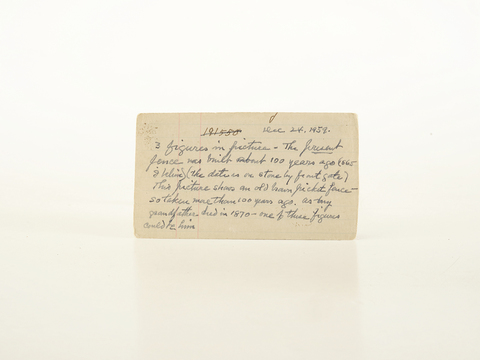 Dec 24, 1959.
3 figures in picture - The present
fence was built about 100 years ago (
(the date is on stone by front gate)
This picture shows an old worn picket fence -
so taken more than 100 years ago. As my
grandfather died in 1870 - one of these figures
could be him